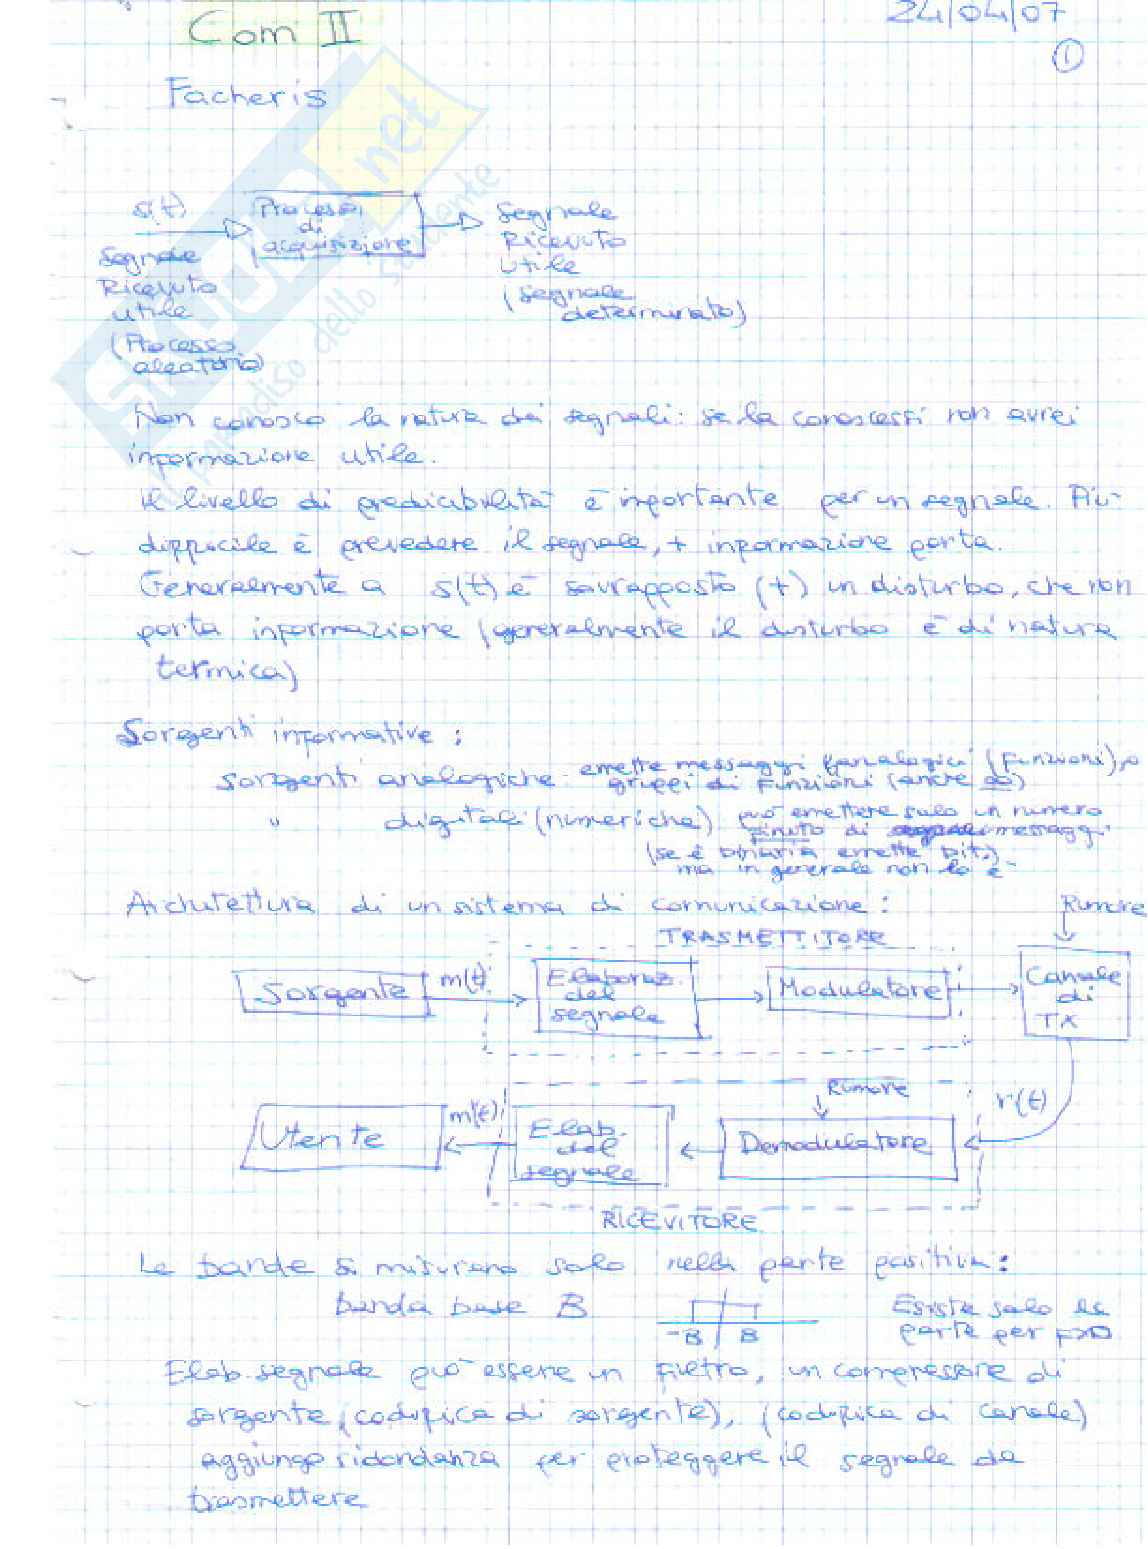 Com II
24/04/07
1
Facheris
s(t)
Processi
di
acquisizione
Segnale
Ricevuto
utile
(Processo
aleatorio)
Segnale
Ricevuto
utile
(segnale
determinato)
SKUOLA.net
il paradiso dello studente
Non conosco la natura dei segnali: se la conoscessi non avrei
informazione utile.
Il livello di predicibilità è importante per un segnale. Più
difficile è prevedere il segnale, + informazione porta.
Generalmente a s(t) è sovrapposto (+) un disturbo, che non
porta informazione (generalmente il disturbo è di natura
termica)
Sorgenti informative:
sorgenti analogiche - emette messaggi analogici (funzioni), o
gruppi di funzioni (anche ∞)
" digitali (numeriche) può emettere solo un numero
finito di messaggi
(se è binaria emette bit)
ma in generale non lo è
Architettura di un sistema di comunicazione:
Rumore
TRASMETTITORE
Sorgente
m(t)
Elaboraz.
del
segnale
Modulatore
Canale
di
TX
Utente
m'(t)
Elab.
del
segnale
Rumore
Demodulatore
r(t)
RICEVITORE
Le bande si misurano solo nella parte positiva:
banda base B
-B B
Esiste solo la
parte per f>0
Elab. segnale può essere un filtro, un compressore di
sorgente (codifica di sorgente), (codifica di canale)
aggiungo ridondanza per proteggere il segnale da
trasmettere